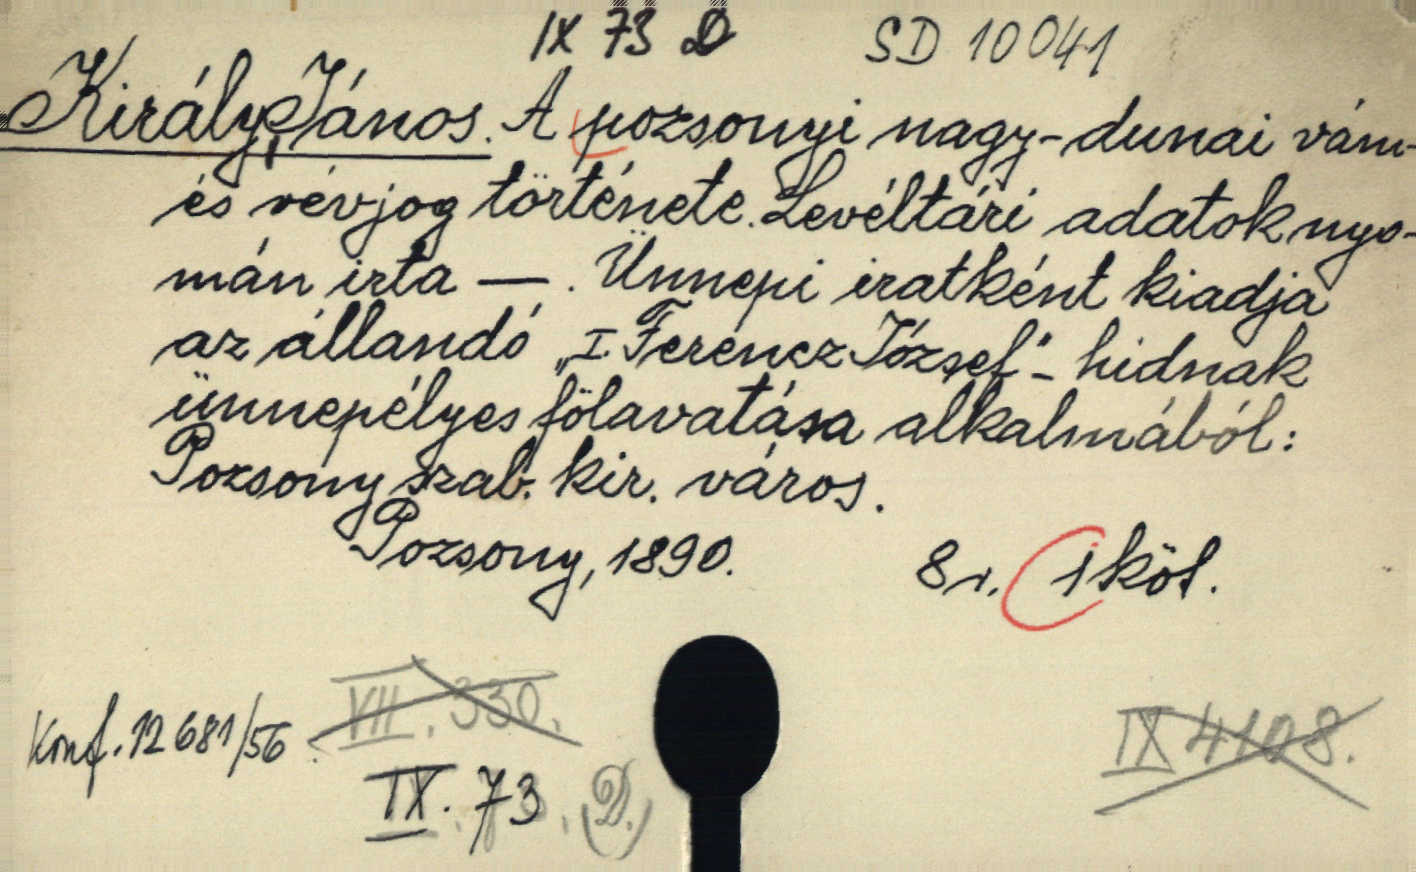 IX 73 D SD 10041
Király, János. A pozsonyi nagy-dunai vám-
és révjog története. Levéltári adatok nyo-
mán irta — . Ünnepi iratként kiadja
az állandó „I. Ferencz József"- hidnak
ünnepélyes fölavatása alkalmából:
Pozsony szab. kir. város.
Pozsony, 1890. 8 r. 1 köt.
VII. 330. IX 4108.
Konf. 12 681/56
IX. 73. (D.)